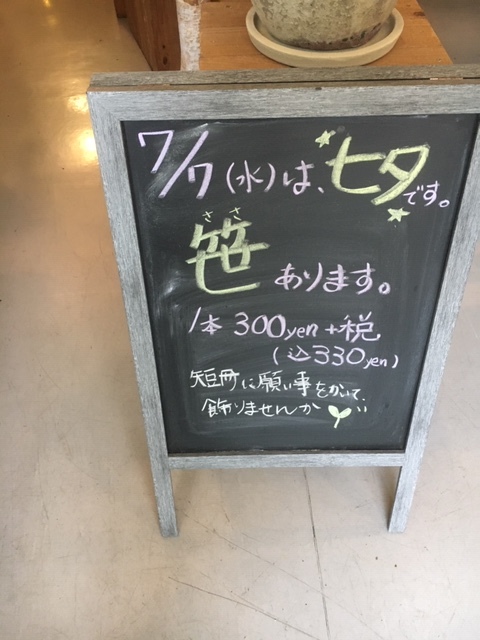 7/7(水)は、七夕です。
ささ
笹あります。
1本 300yen+税
(込330yen)
短冊に願い事をかいて、
飾りませんか